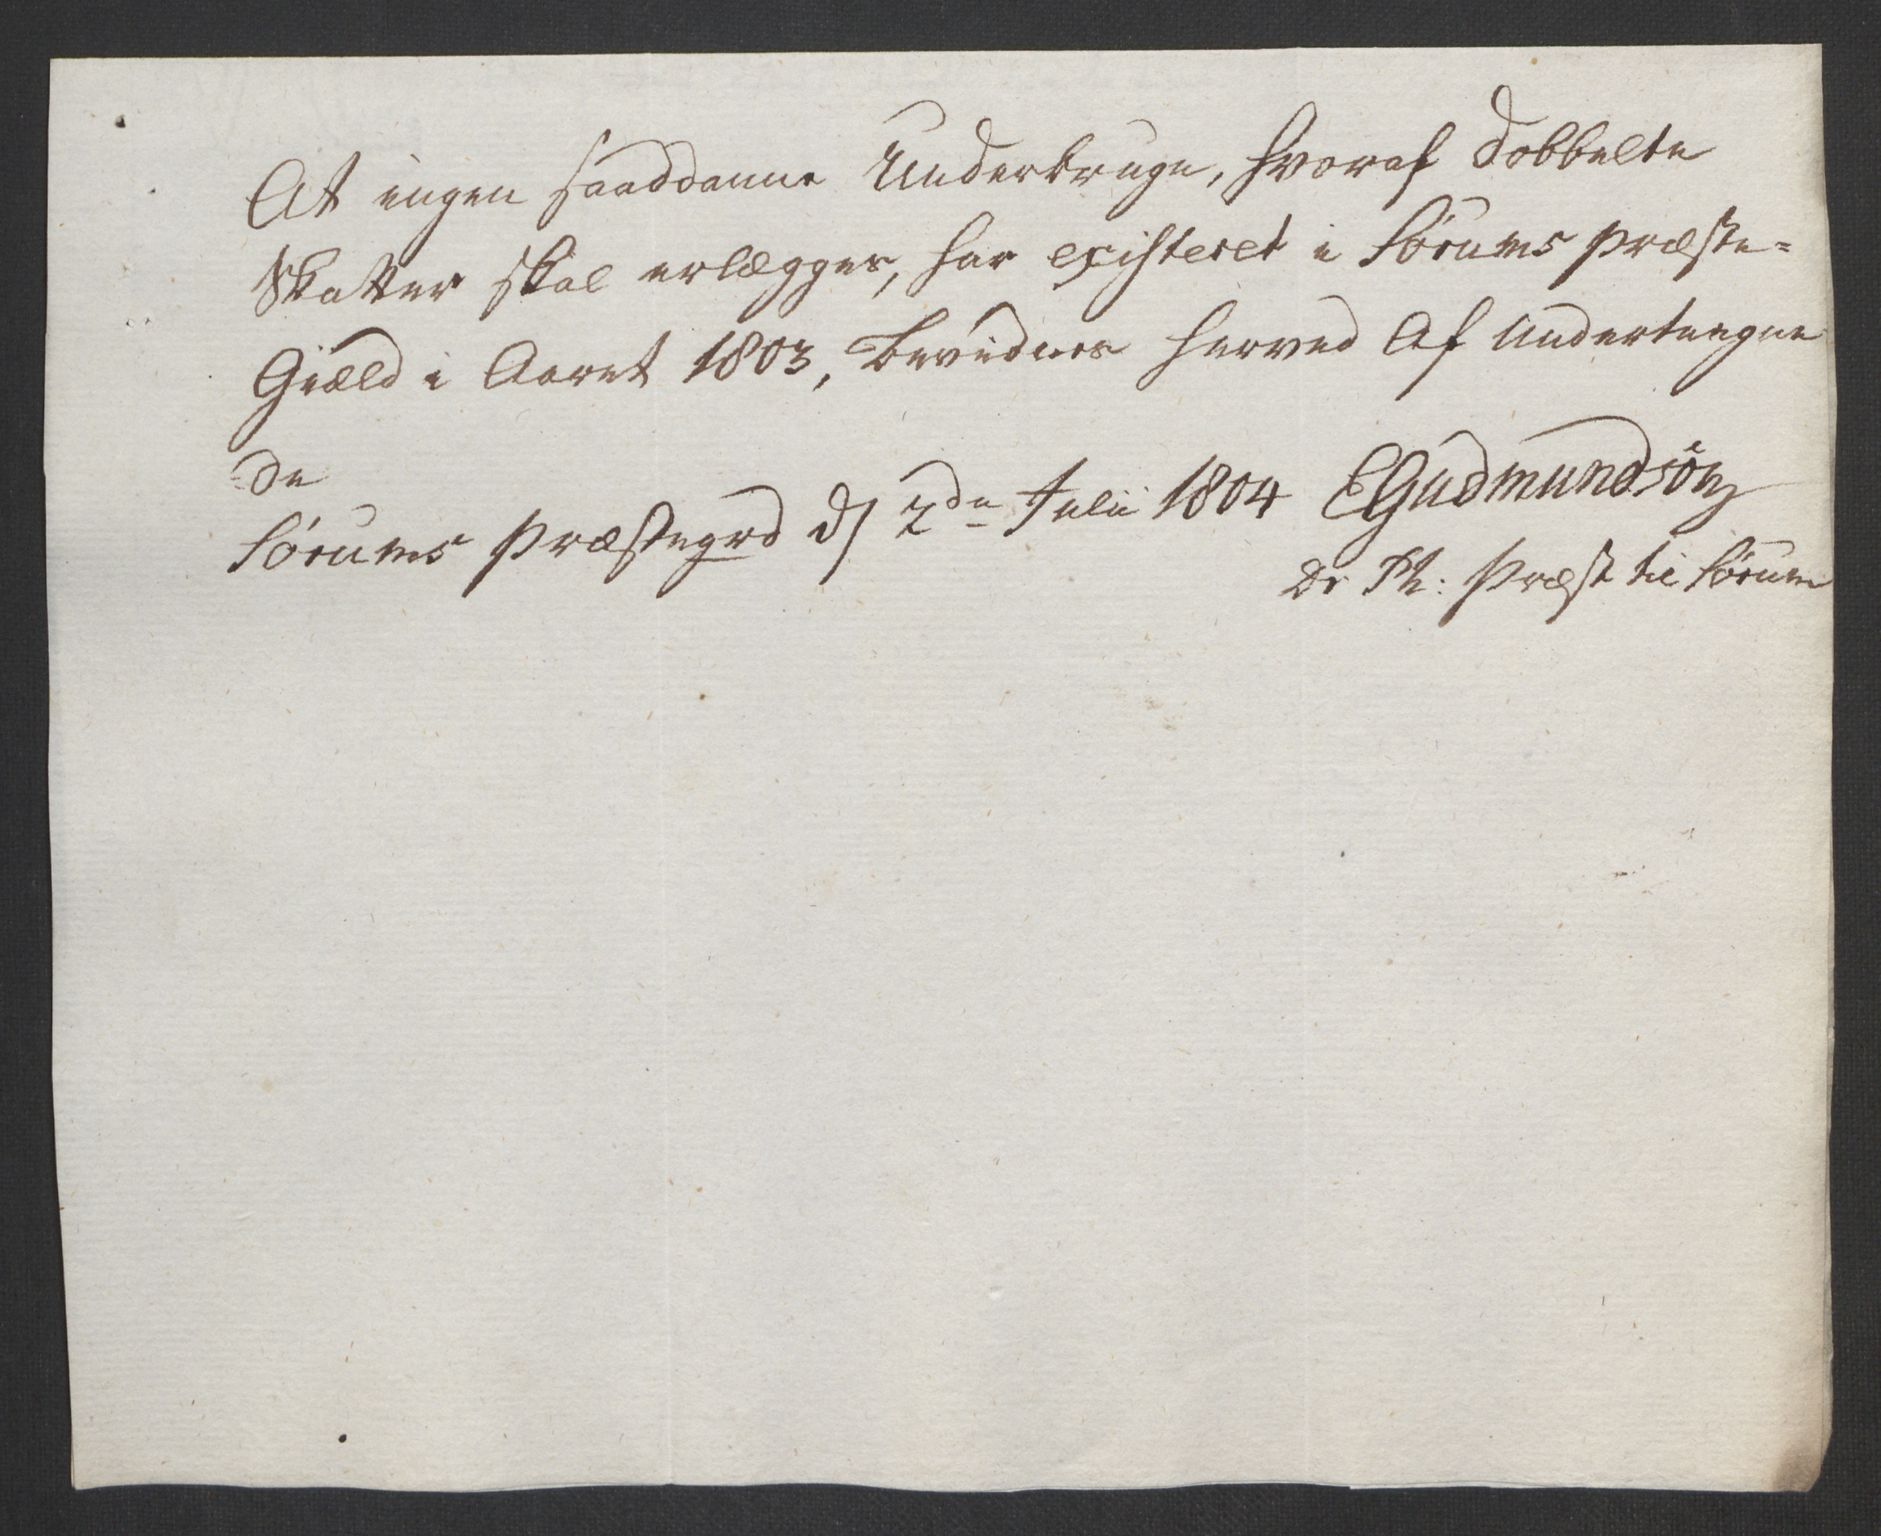 At ingen saaddanne Underbruge, hvoraf dobbelte
Skatter skal erlægges, har existeret i Sørums Præste=
Giæld i Aaret 1803, bevidnes herved af Undertegne
de
Sørums Præstegrd d 2de Julii 1804 EGudmundsön
Præst til Sørum